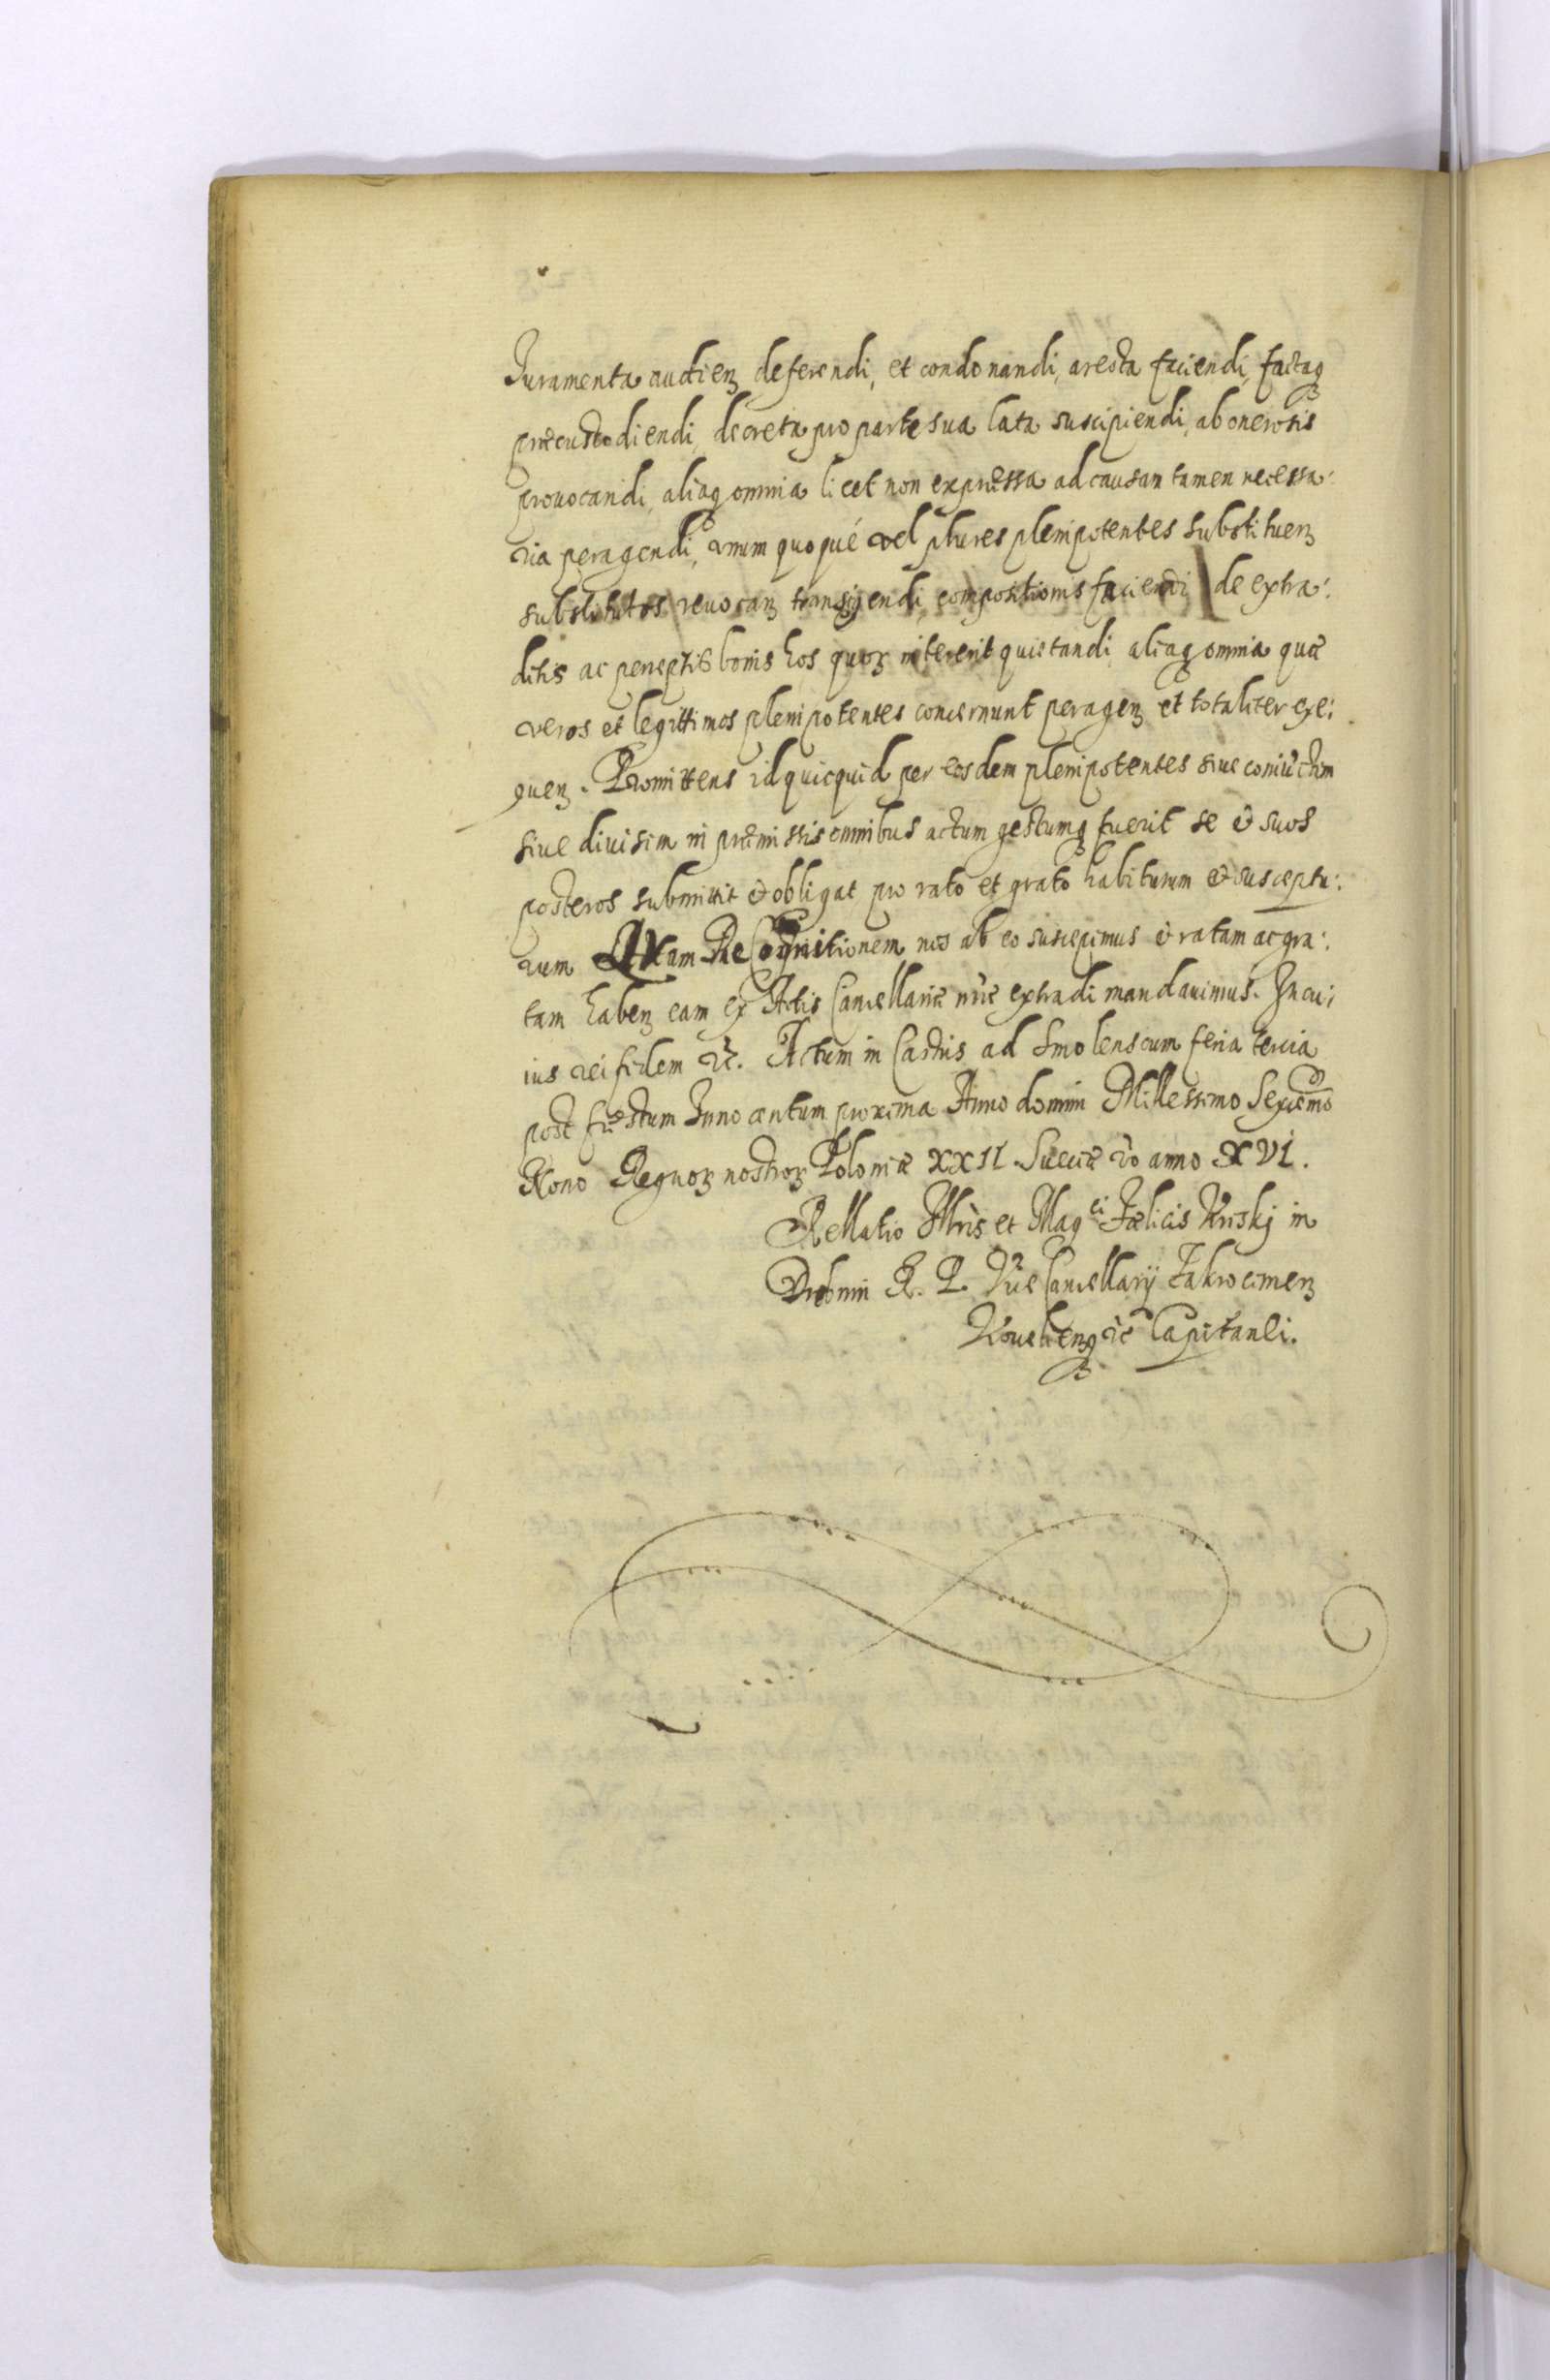 Juramenta audienꝫ deferendi, et condonandi, aresta faciendi, factaqꝫ
præcustodiendi, decreta pro parte sua lata suscipiendi, ab onerosis
prouocandi, aliaqꝫ omnia licet non expressa ad causam tamen necessa:
ria peragendi, unum quoqué vel plures plenipotentes substituenꝫ
substitutos reuocanꝫ transigendi, compositionis faciendi de extra:
ditis ac perceptis bonis hos quorꝫ intererit quietandi aliaqꝫ omnia quæ
veros et legittimos plenipotentes concernunt peragenꝫ et totaliter exe:
quenꝫ. Promittens id quicquid per eosdem plenipotentes siue coniūctim
siue diuisim in præmissis omnibus actum gestumqꝫ fuerit se & suos
posteros submittit & obligat pro rato et grato habiturum & susceptu:
rum Recognitionem nos ab eo suscepimus & ratam ac gra:
tam habenꝫ eam ex Actis Cancellariæ nrae extradi mandauimus. In cui:
ius rei fidem &c. Actum in Castris ad Smolenscum feria tercia
post festum Innocentum proxima Anno domini Millessimo Sexcēmo
Nono Regnorꝫ nostrorꝫ Poloniæ XXII Sueciæ vo anno XVI.
Rellatio Illris et Magci Fælicis Kriski in
Drobnin R. P. Vice Cancellarij Zakrocimenꝫ
&c Capitanei.